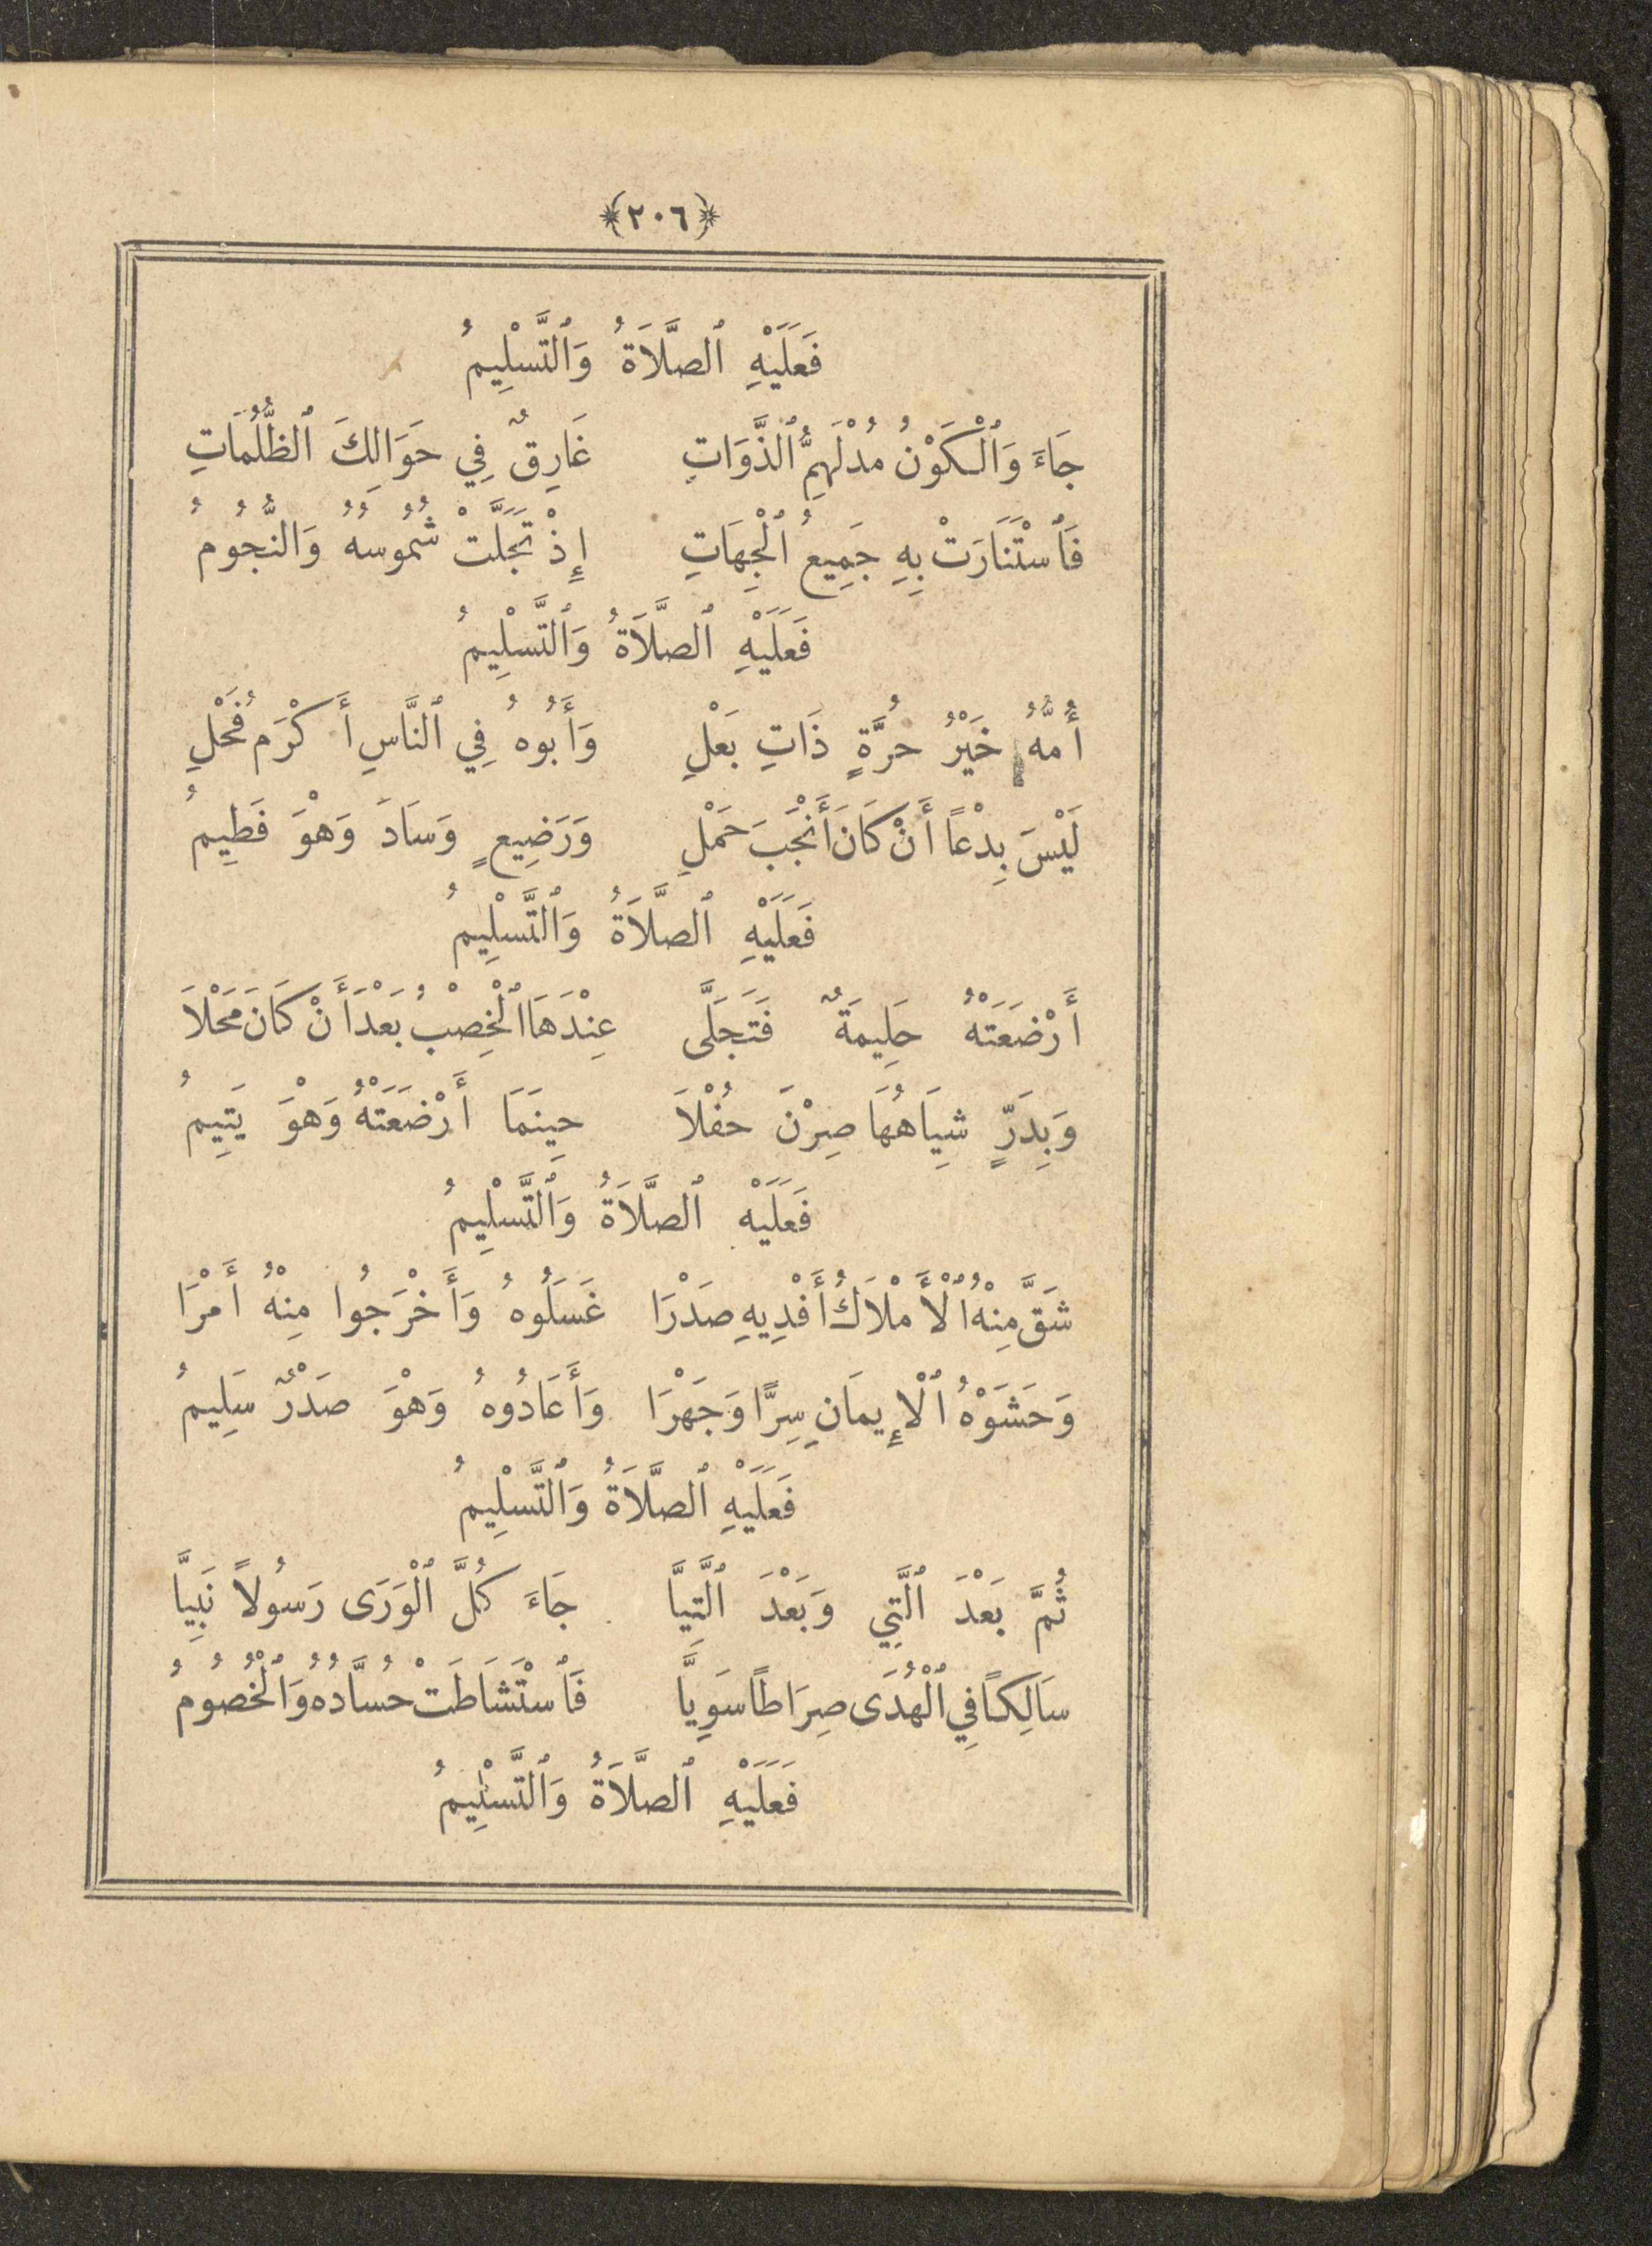 ﴿٢٠٦﴾
فَعَلَيْهِ ٱلصَّلاَةُ وَٱلتَّسْلِيمُ
جَاءَ وَٱلْكَوْنُ مُدْلَهِمُّ ٱلذَّوَاتِ غَارِقٌ فِي حَوَالِكَ ٱلظُّلُمَاتِ
فَٱسْتَنَارَتْ بِهِ جَمِيعُ ٱلْجِهَاتِ إِذْ تَجَلَّتْ شُمُوسُهُ وَالنُّجُومُ
فَعَلَيْهِ ٱلصَّلاَةُ وَٱلتَّسْلِيمُ
أُمُّهُ خَيْرُ حُرَّةٍ ذَاتِ بَعْلِ وَأَبُوهُ فِي ٱلنَّاسِ أَكْرَمُ فَحْلِ
لَيْسَ بِدْعاً أَنْ كَانَ أَنْجَبَ حَمْلِ وَرَضِيعٍ وَسَادَ وَهْوَ فَطِيمُ
فَعَلَيْهِ ٱلصَّلاَةُ وَٱلتَّسْلِيمُ
أَرْضَعَتْهُ حَلِيمَةٌ فَتَجَلَّى عِنْدَهَا ٱلْخِصْبُ بَعْدَ أَنْ كَانَ مَحْلاَ
وَبِدَرٍّ شِيَاهُهَا صِرْنَ حُفْلاَ حِينَمَا أَرْضَعَتْهُ وَهْوَ يَتِيمُ
فَعَلَيْهِ ٱلصَّلاَةُ وَٱلتَّسْلِيمُ
شَقَّ مِنْهُ ٱلْأَمْلاَكُ أَفْدِيهِ صَدْرَا غَسَلُوهُ وَأَخْرَجُوا مِنْهُ أَمْرَا
وَحَشَوْهُ ٱلْإِيمَانِ سِرًّا وَجَهْرَا وَأَعَادُوهُ وَهْوَ صَدْرٌ سَلِيمُ
فَعَلَيْهِ ٱلصَّلاَةُ وَٱلتَّسْلِيمُ
ثُمَّ بَعْدَ ٱلَّتِي وَبَعْدَ ٱلَّتِيَّا جَاءَ كُلَّ ٱلْوَرَى رَسُولاً نَبِيَّا
سَالِكاً فِي ٱلْهُدَى صِرَاطاً سَوِيَّا فَٱسْتَشَاطَتْ حُسَّادُهُ وَٱلْخُصُومُ
فَعَلَيْهِ ٱلصَّلاَةُ وَٱلتَّسْلِيمُ